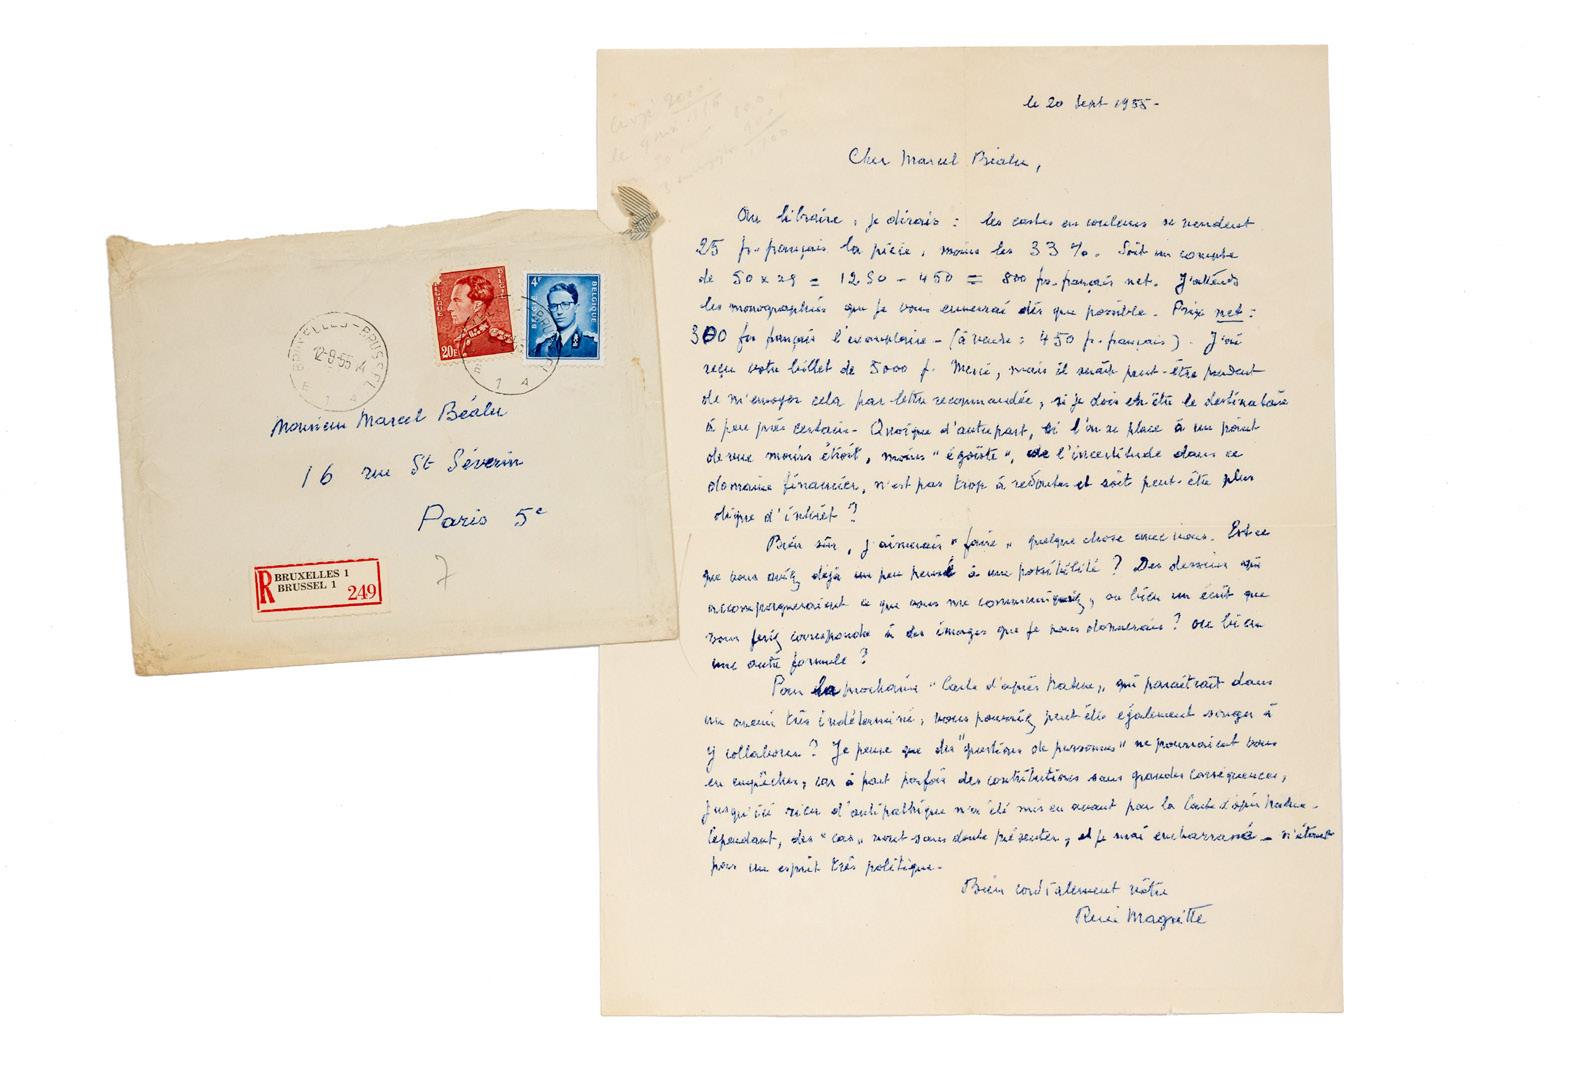 BRUXELLES - BRUSSEL
12-9-55
1 A
20F
BELGIQUE
4F
BELGIQUE
1 A
Monsieur Marcel Béalu
16 rue St Séverin
Paris 5e
R BRUXELLES 1
BRUSSEL 1 249
7
le 20 Sept 1955 -
Cher Marcel Béalu,
Au libraire, je dirais : les cartes en couleurs se vendent
25 fr. français la pièce, moins les 33 %. Soit un compte
de 50 x 25 = 1250 - 450 = 800 frs. français net. J'attends
les monographies que je vous enverrai dès que possible. Prix net :
300 frs français l'exemplaire - (à vendre : 450 fr. français). J'ai
reçu votre billet de 5000 f. Merci, mais il serait peut-être prudent
de m'envoyer cela par lettre recommandée, si je dois en être le destinataire
à peu près certain - Quoique d'autre part, si l'on se place à un point
de vue moins étroit, moins "égoïste", de l'incertitude dans ce
domaine financier, n'est pas trop à redouter et soit peut-être plus
digne d'intérêt ?
Bien sûr, j'aimerais "faire" quelque chose avec vous. Est-ce
que vous aviez déjà un peu pensé à une possibilité ? Des dessins qui
accompagneraient ce que vous me communiquiez, ou bien un écrit que
vous feriez correspondre à des images que je vous donnerais ? ou bien
une autre formule ?
Pour la prochaine "Carte d'après Nature", qui paraîtrait dans
un avenir très indéterminé, vous pourriez peut-être également songer à
y collaborer ? Je pense que des "questions de personnes" ne pourraient vous
en empêcher, car à part parfois des contributions sans grandes conséquences,
jusqu'ici rien d'antipathique n'a été mis en avant par la Carte d'après Nature.
Cependant, des "cas" vont sans doute présenter, et je serai embarrassé - n'étant
pas un esprit très politique.
Bien cordialement vôtre
René Magritte